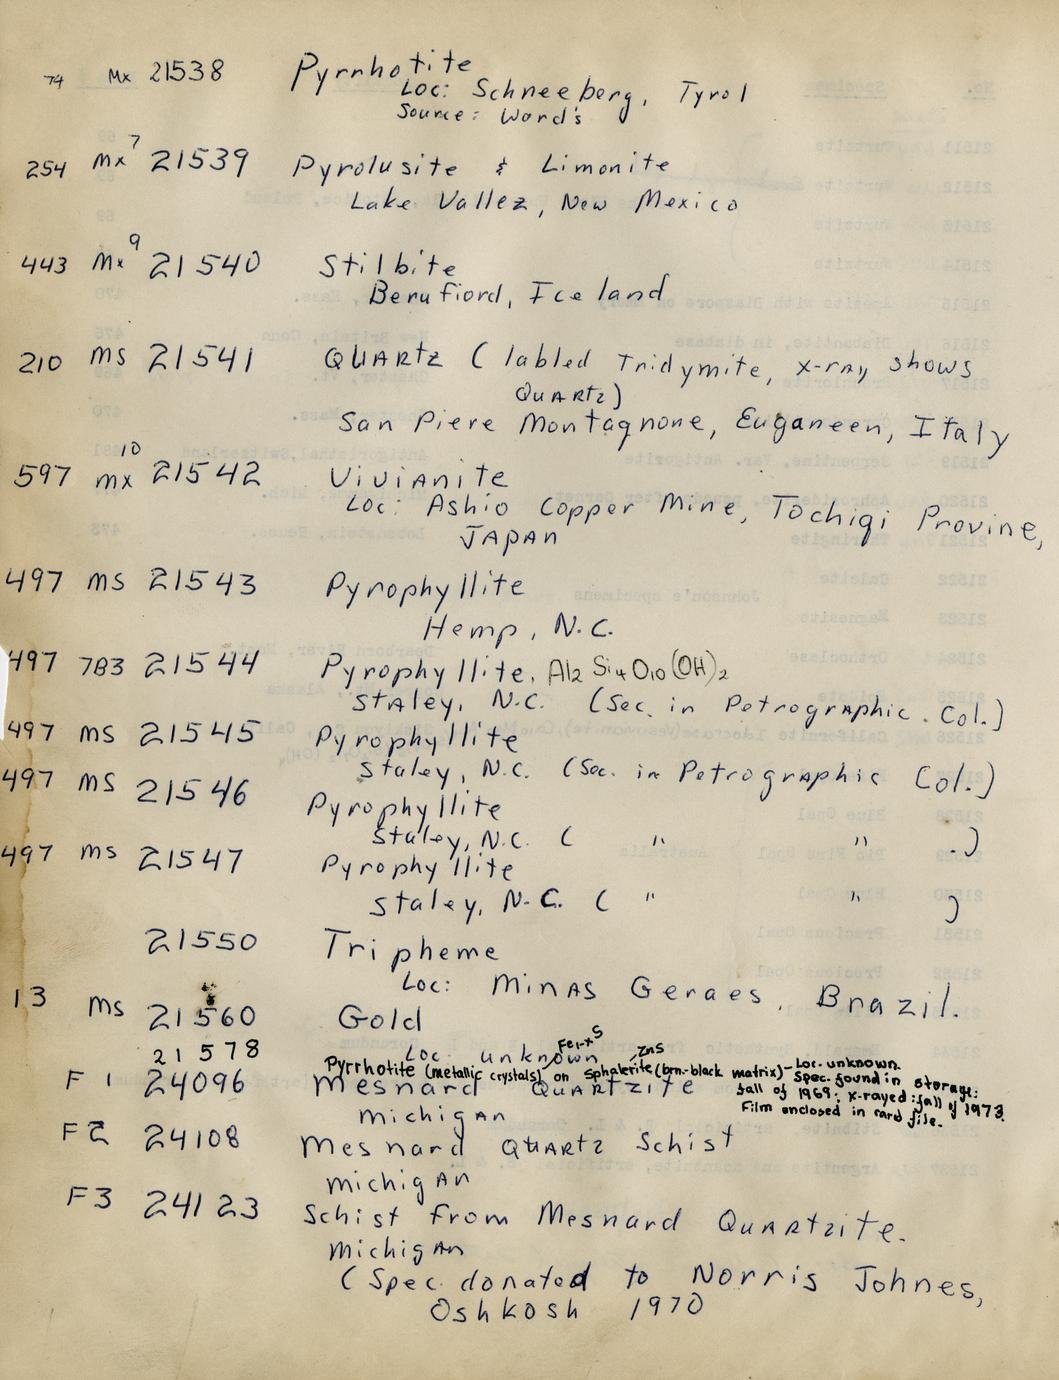 74 Mx 21538 Pyrrhotite
Loc: Schneeberg, Tyrol
Source: Ward's
254 Mx 7 21539 Pyrolusite & Limonite
Lake Vallez, New Mexico
443 Mx 9 21540 Stilbite
Berufiord, Iceland
210 MS 21541 Quartz ( labled Tridymite, x-ray shows
Quartz)
San Piere Montagnone, Euganeen, Italy
597 Mx 10 21542 Vivianite
Loc: Ashio Copper Mine, Tochigi Provine,
Japan
497 MS 21543 Pyrophyllite
Hemp, N.C.
497 7B3 21544 Pyrophyllite, Al2 Si4 O10 (OH)2
Staley, N.C. (Sec. in Petrographic. Col.)
497 MS 21545 Pyrophyllite
Staley, N.C. (Sec. in Petrographic Col.)
497 MS 21546 Pyrophyllite
Staley, N.C. ( " " .)
497 MS 21547 Pyrophyllite
Staley, N.C. ( " " )
21550 Tripheme
Loc: Minas Geraes, Brazil.
13 MS 21560 Gold
Loc. unknown
21578 Pyrrhotite (metallic crystals) Fe1-xS on Sphalerite ZnS (brn-black matrix) - Loc. unknown.
Spec. found in storage:
fall of 1969; x-rayed: fall of 1973.
Film enclosed in card file.
F 1 24096 Mesnard Quartzite
Michigan
F2 24108 Mesnard Quartz Schist
Michigan
F3 24123 Schist from Mesnard Quartzite.
Michigan
(Spec. donated to Norris Johnes,
Oshkosh 1970